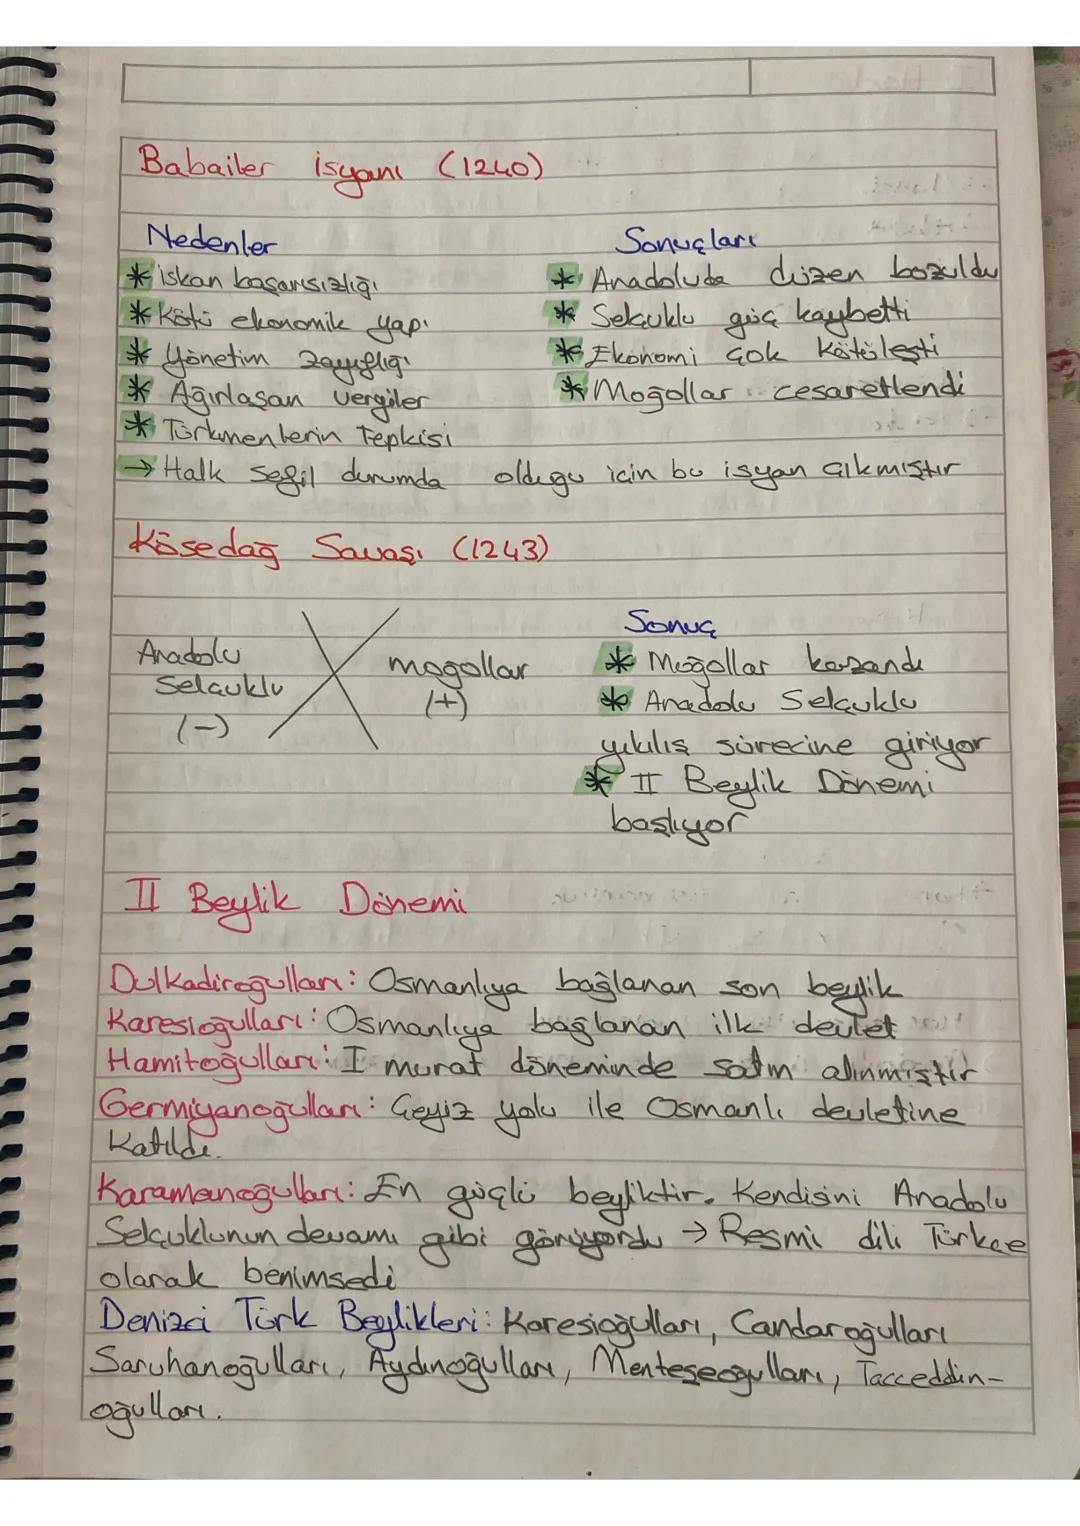 Babailer isyanı (1240)
Nedenler
* iskan başarısızlığı
* Kötü ekonomik yapı
* Yönetim zayıflığı
* Ağırlaşan vergiler
* Türkmenlerin Tepkisi
Sonuçları
* Anadoluda düzen bozuldu
* Selçuklu güç kaybetti
* Ekonomi çok kötüleşti
* Moğollar cesaretlendi
→ Halk sefil durumda olduğu için bu isyan çıkmıştır
Kösedağ Savaşı (1243)
Anadolu
Selçuklu
(-)
mogollar
(+)
Sonuç
* Moğollar kazandı
* Anadolu Selçuklu
yıkılış sürecine giriyor
* II Beylik Dönemi
başlıyor
II Beylik Dönemi
Dulkadiroğulları: Osmanlıya bağlanan son beylik
Karesioğulları: Osmanlıya bağlanan ilk devlet
Hamitoğulları: I murat döneminde satın alınmıştır
Germiyanoğulları: Çeyiz yolu ile Osmanlı devletine
Katıldı.
Karamanoğulları: En güçlü beyliktir. Kendisini Anadolu
Selçuklunun devamı gibi görüyordu → Resmi dili Türkçe
olarak benimsedi
Denizci Türk Beylikleri: Karesioğulları, Candaroğulları
Saruhanoğulları, Aydınoğulları, Menteşeoğulları, Tacceddin-
oğulları.